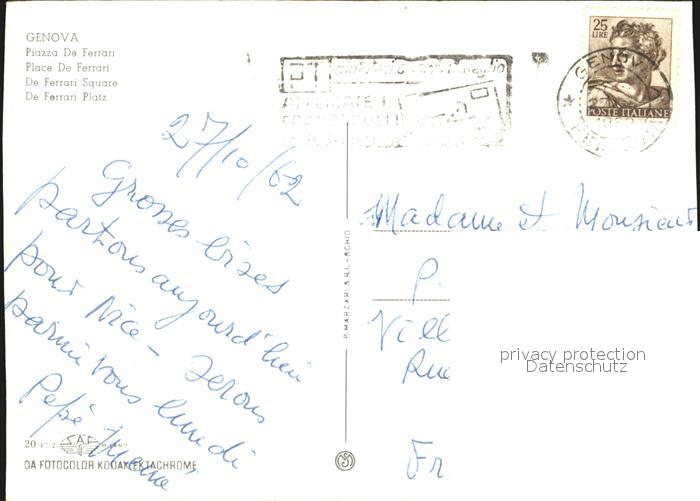 GENOVA
Piazza De Ferrari
Place De Ferrari
De Ferrari Square
De Ferrari Platz
25
LIRE
POSTE ITALIANE
GENOVA
27/10/62
Grosses bises
partons aujourd'hui
pour Nice - serons
parmi vous lundi
Pépé
Madame et Monsieur
P.
Vill
Rue
Fr
privacy protection
Datenschutz
P. MARZARI S.R.L. - SCHIO
20
SAF
MILANO
DA FOTOCOLOR KODAK EKTACHROME